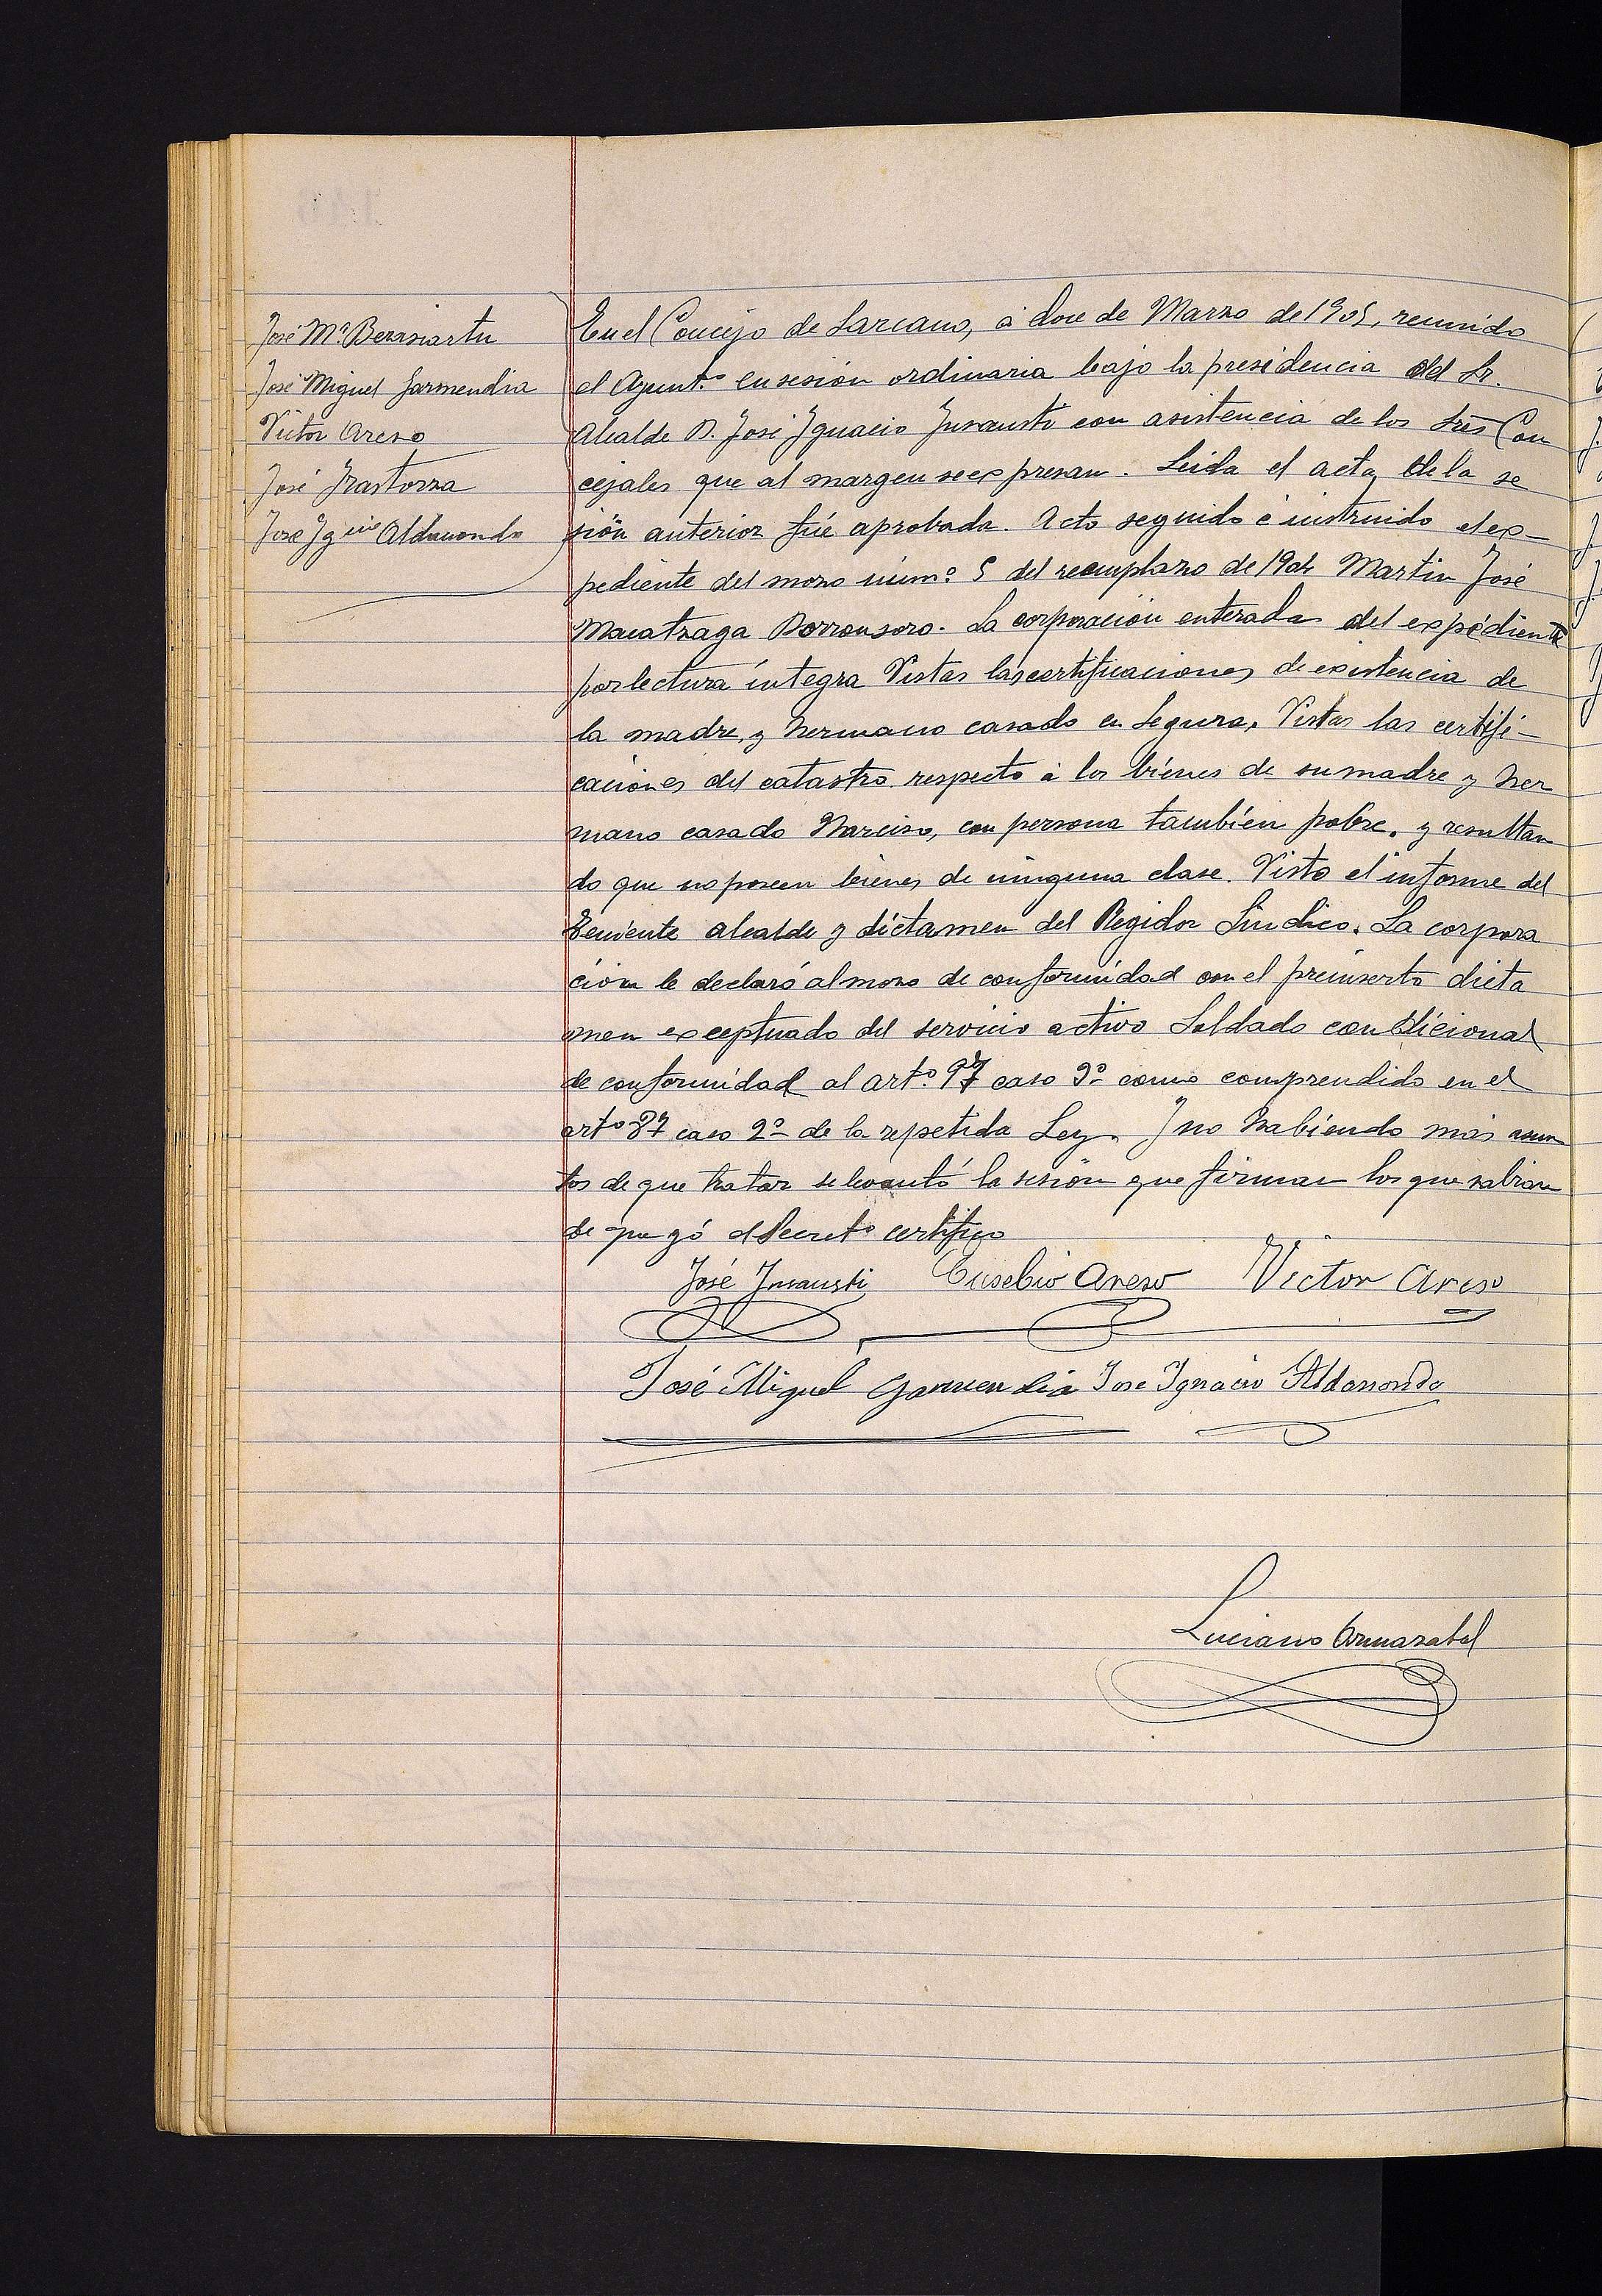 José Mª. Berasiartu
José Miguel Garmendia
Victor Areso
José Irastorza
José Ygcio Aldanondo
En el Concejo de Lazcano, á doce de Marzo de 1905, reunido
el Ayuntº en sesión ordinaria bajo la presidencia del Sr.
Alcalde D. José Ygnacio Insausti con asistencia de los Sres Con
cejales que al margen se expresan. Leida el acta de la se
sión anterior fué aprobada. Acto seguido é instruido el ex-
pediente del mozo númº 5 del reemplazo de 1904 Martin José
Maiatzaga Dorronsoro. La corporación enterada del expediente
por lectura íntegra Vistas las certificaciones de existencia de
la madre, y hermano casado en Segura, Vistas las certifi-
caciones del catastro respecto á los bienes de su madre y her
mano casado Narciso, con persona también pobre. y resultan
do que no poseen bienes de ninguna clase. Visto el informe del
Teniente alcalde y dictamen del Regidor Sindico. La corpora
ción le declaró al mozo de conformidad con el preinserto dicta
men exceptuado del servicio activo Soldado condicional
de conformidad al artº. 97 caso 3º como comprendido en el
artº 87 caso 2º de la repetida Ley. Y no habiendo más asun
tos de que tratar se levantó la sesión que firman los que sabian
de que yó el Secretº certifico
José Insausti Eusebio Areso Victor Areso
José Miguel Garmendia Jose Ygnacio Aldanondo
Luciano Armazabal